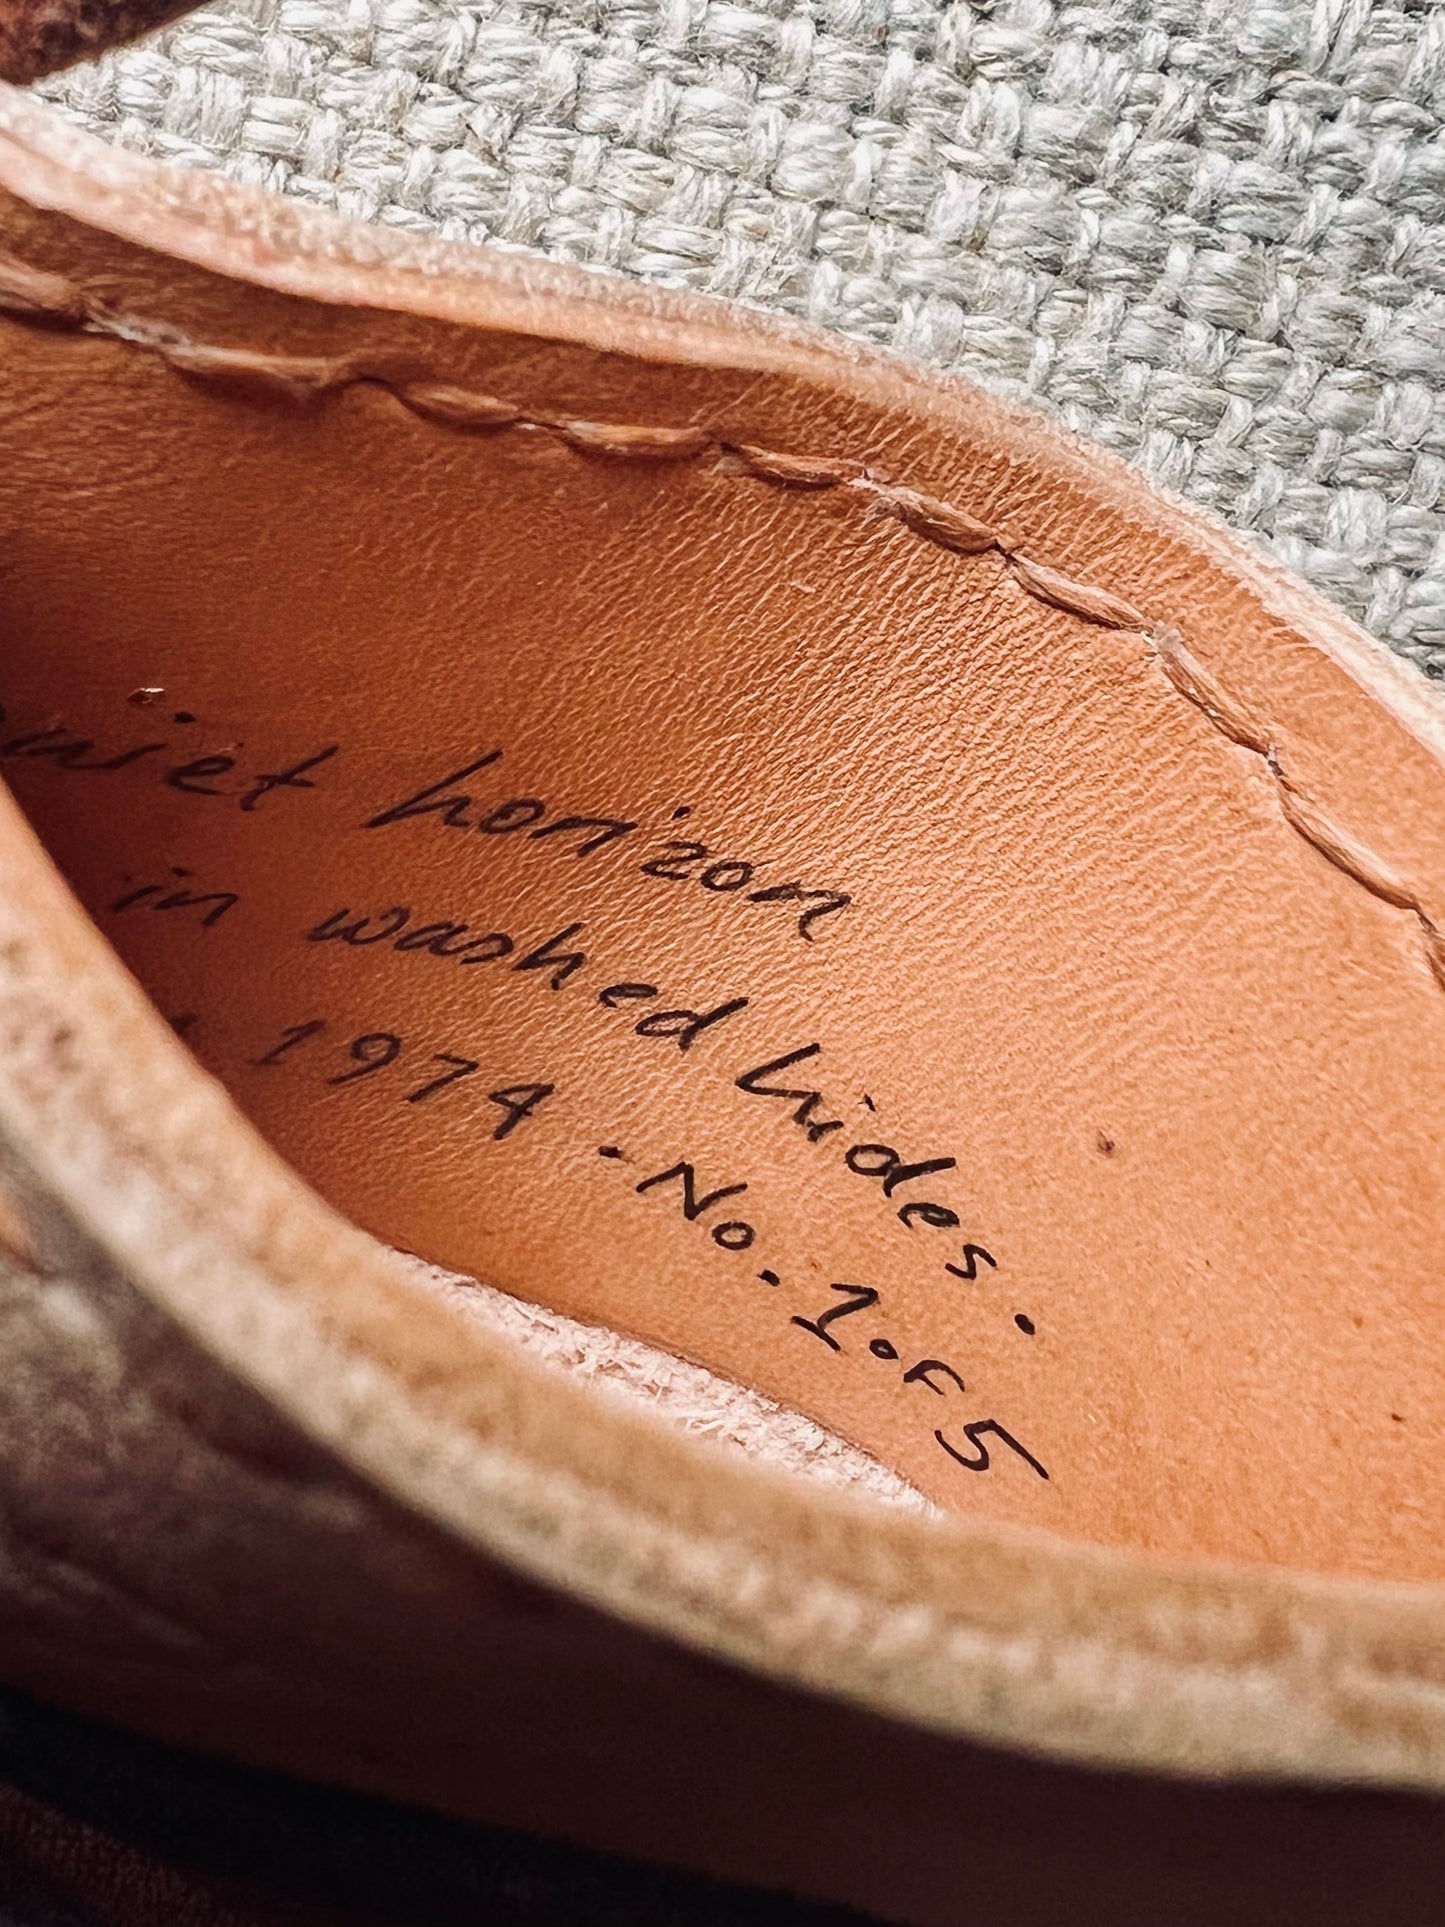 quiet horizon
in washed hides.
1974 - No. 1 of 5